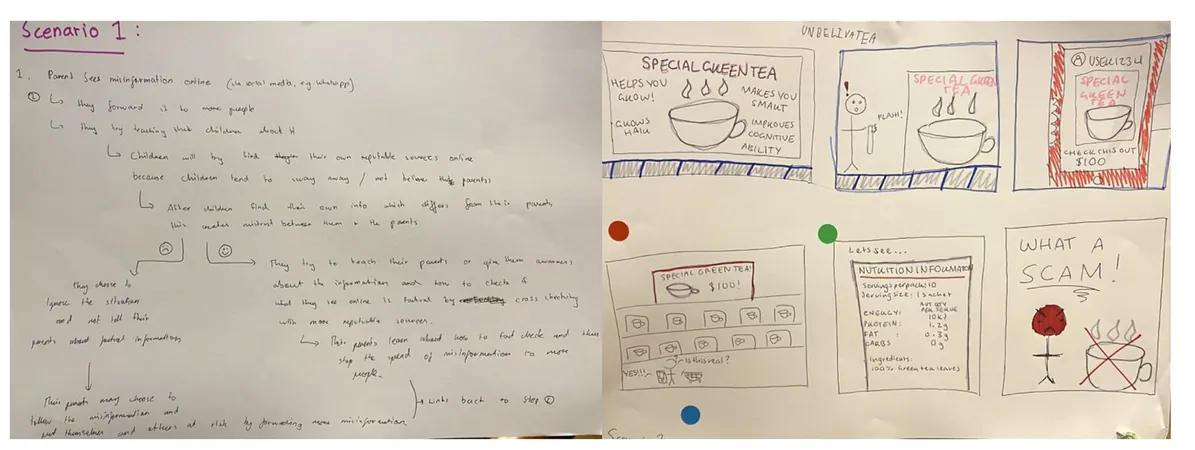 Scenario 1:
1. Parent sees misinformation online (via social media, e.g. Whatsapp)
① ↳ they forward it to more people
↳ they try teaching their children about it
↳ Children will try find their own reputable sources online
because children tend to sway away / not believe their parents
↳ After children find their own info which differs from their parents
this creates mistrust between them & the parents
They choose to
ignore the situation
and not tell their
parents about factual information
Their parents may choose to
follow the misinformation and
put themselves and others at risk by forwarding more misinformation.
They try to teach their parents or give them awareness
about the information and how to check if
what they see online is factual by cross checking
with more reputable sources.
↳ Their parents learn about how to fact check and thus
stop the spread of misinformation to more
people.
→ Links back to step ①
UNBELIVATEA
SPECIAL GREEN TEA
HELPS YOU
GROW!
GROWS
HAIR
MAKES YOU
SMART
IMPROVES
COGNITIVE
ABILITY
!
FLASH!
SPECIAL GREEN
TEA
USER1234
SPECIAL
GREEN
TEA
CHECK THIS OUT
$100
SPECIAL GREEN TEA!
$100!
Is this real?
YES!!!
Lets see...
NUTRITION INFORMATION
Servings per pack: 10
Serving size: 1 sachet
AVT QTY
PER SERVE
ENERGY: 10kJ
PROTEIN: 1.2g
FAT : 0.3g
CARBS 0g
Ingredients:
100% Green tea leaves
WHAT A
SCAM!